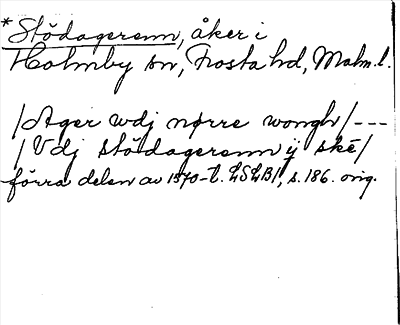 *Stödagerenn, åker i
Holmby sn, Frosta hd, Malm. l.
/Ager wdj nørre wongh/ ---
/Vdj stödagerenn ij ske/
förra delen av 1570-t. LSLB1, s. 186. orig.